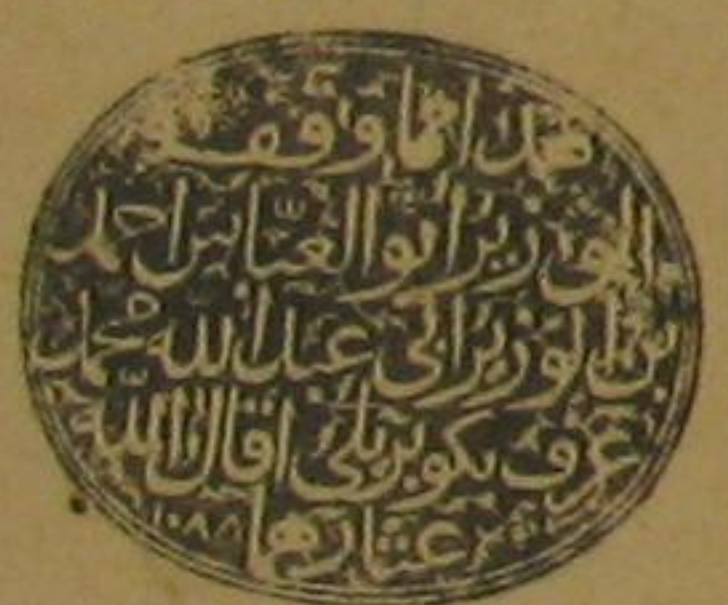 هذا مما وقفه
الوزير أبو العباس احمد
بن الوزير أبي عبد الله محمد
عرف بكوبريلي اقال الله
عثارهما ١٠٨٨